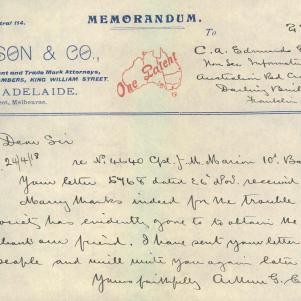 tral 114.
MEMORANDUM.
To
SON & CO.,
ent and Trade Mark Attorneys,
MBERS, KING WILLIAM STREET.
ADELAIDE.
et, Melbourne.
One Patent
C. A. Edmunds E
Hon Sec Informatio
Australian Red Cr
Darling Build
Franklin
Dear Sir
24/4/18
re No 4640 Cpl. J. M. Marion 10th Ba
Your letter 5968 dated 26 Nov. received
Many thanks indeed for the trouble
ociety has evidently gone to obtain the
about our friend. I have sent your letter
people and will write you again later
Yours faithfully Arthur G. C